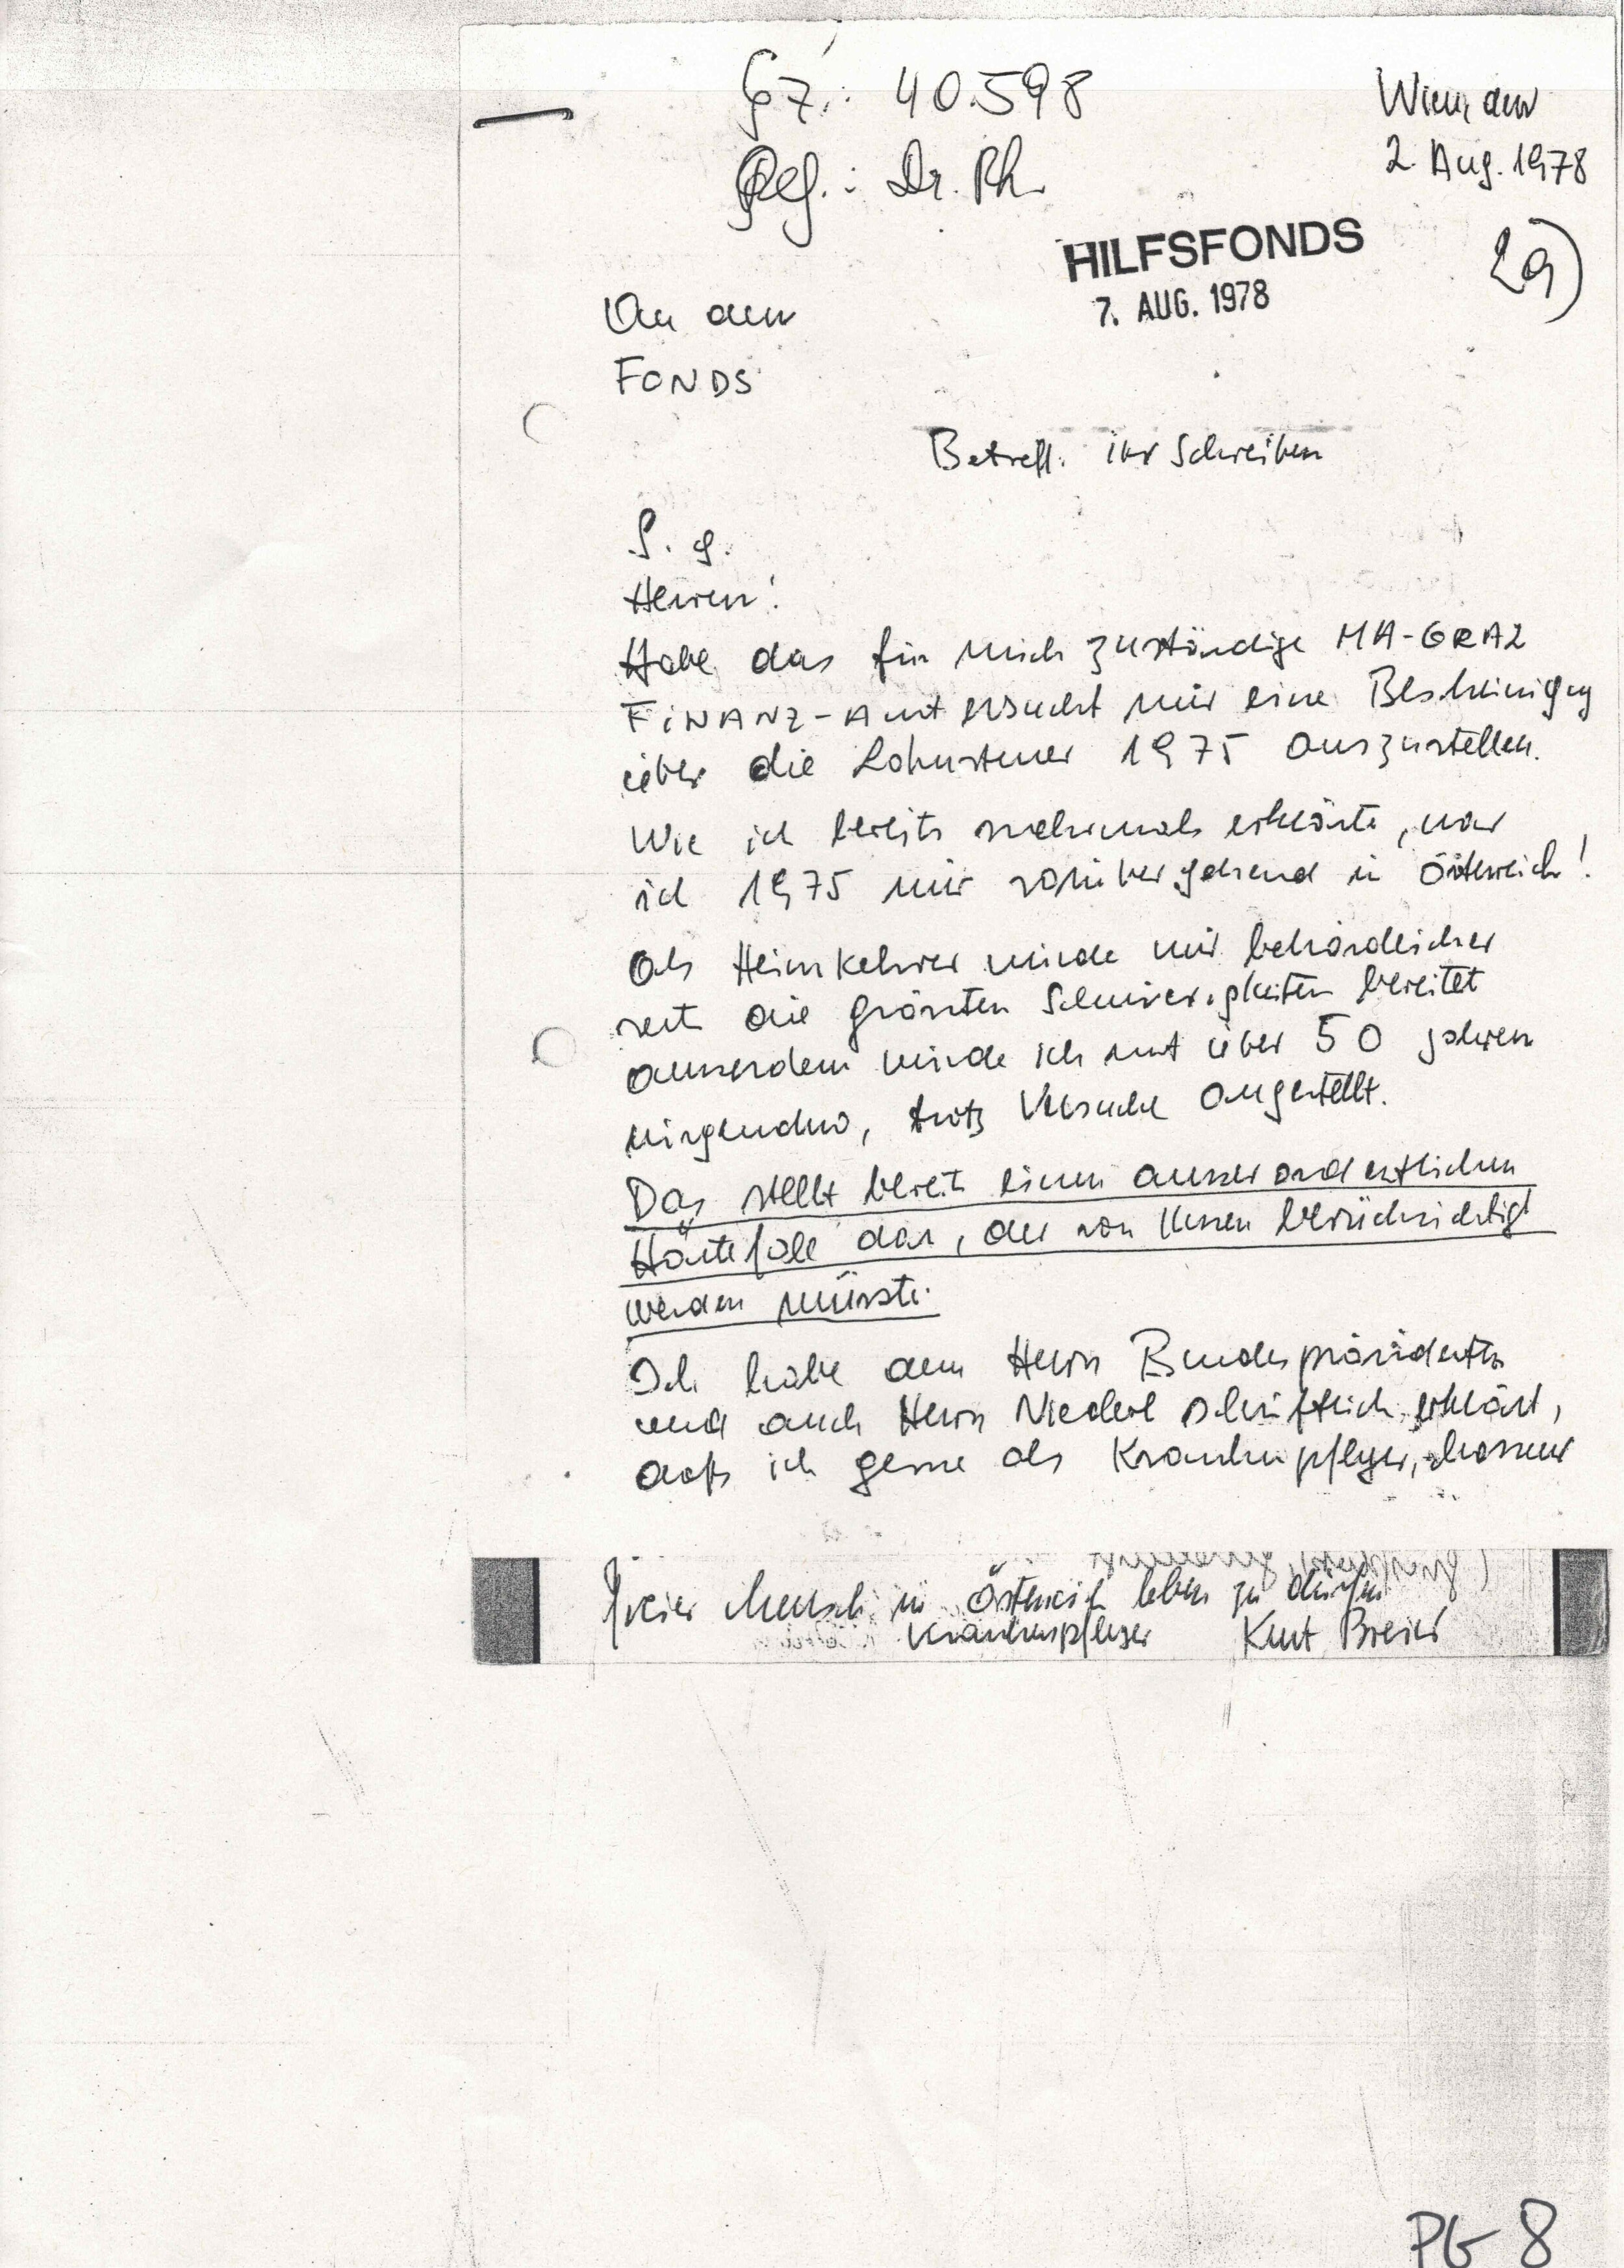 Gz.: 40.598
Wien, den
2. Aug. 1978
Ref.: Dr. Ph.
HILFSFONDS
7. AUG. 1978
29)
An den
FONDS
Betreff. ihr Schreiben
S. g.
Herren!
Habe das für mich zuständige MA-GRAZ
FINANZ-Amt ersucht mir eine Bescheinigung
über die Lohnsteuer 1975 auszustellen.
Wie ich bereits mehrmals erklärte, war
ich 1975 nur vorübergehend in Österreich!
Als Heimkehrer wurde mir behördlicher
seits die grössten Schwierigkeiten bereitet
ausserdem wurde ich mit über 50 Jahren
nirgendwo, trotz Versuche angestellt.
Das stellt bereits einen ausserordentlichen
Härtefall dar, der von Ihnen berücksichtigt
werden müsste.
Ich habe dem Herrn Bundespräsidenten
und auch Herrn Niederl schriftlich erklärt,
daß ich gerne als Krankenpfleger, Masseur
freier Mensch in Österreich leben zu dürfen
Krankenpfleger Kurt Breier
PG 8